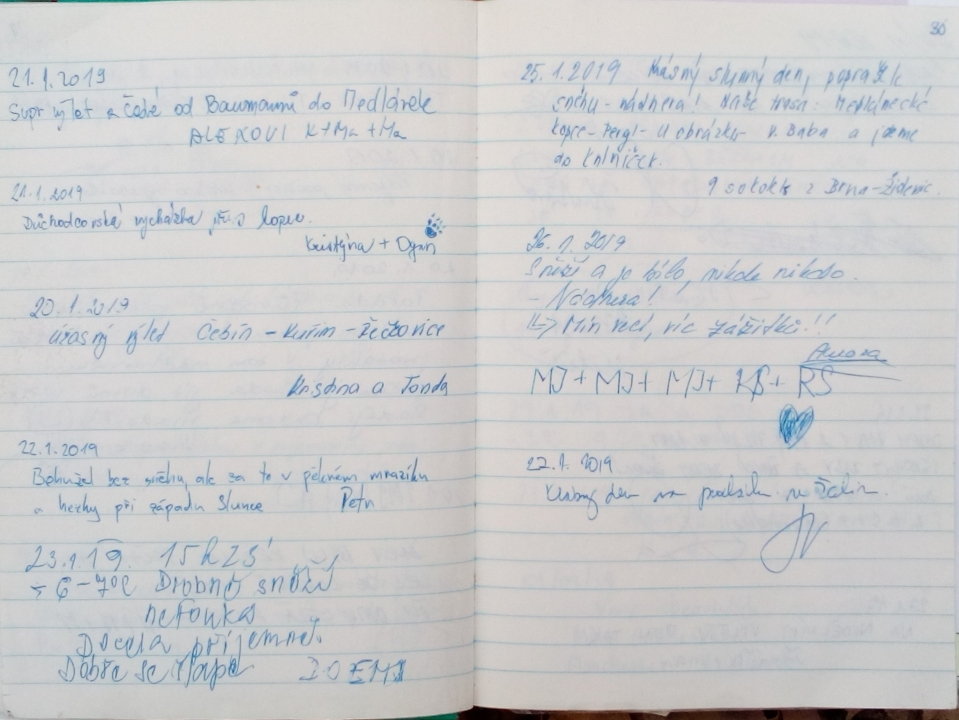 21.1.2019
Supr výlet z Čebé od Baumannů do Medlánek
ALEKOVI K+Ma+Ma
21.1.2019
Důchodcovská vycházka přes kopec.
Kristýna + Dyan
20.1.2019
úžasný výlet Čebín - Kuřim - Žežovice
Kristina a Tonda
22.1.2019
Bohužel bez sněhu, ale za to v pěkném mrazíku
a hezky při západu Slunce Petr
23.1.19. 15h25'
÷ 6-7°C Drobný sněží
nefouká
Docela příjemně.
Dobře se šlape
30
25.1.2019 Krásný slunný den, poprašek
sněhu - nádhera! Naše trasa: Medlánecké
kopce - Pergl - U obrázku v. Baba a jdeme
do Kolniček.
9 sokolek z Brna-Židenic.
26.1.2019
Sněží a je bílo, nikde nikdo.
- Nádhera!
Míň řečí, víc zážitků!!
MJ + MJ + MJ + KŠ + RS
27.1.2019
Krásný den na